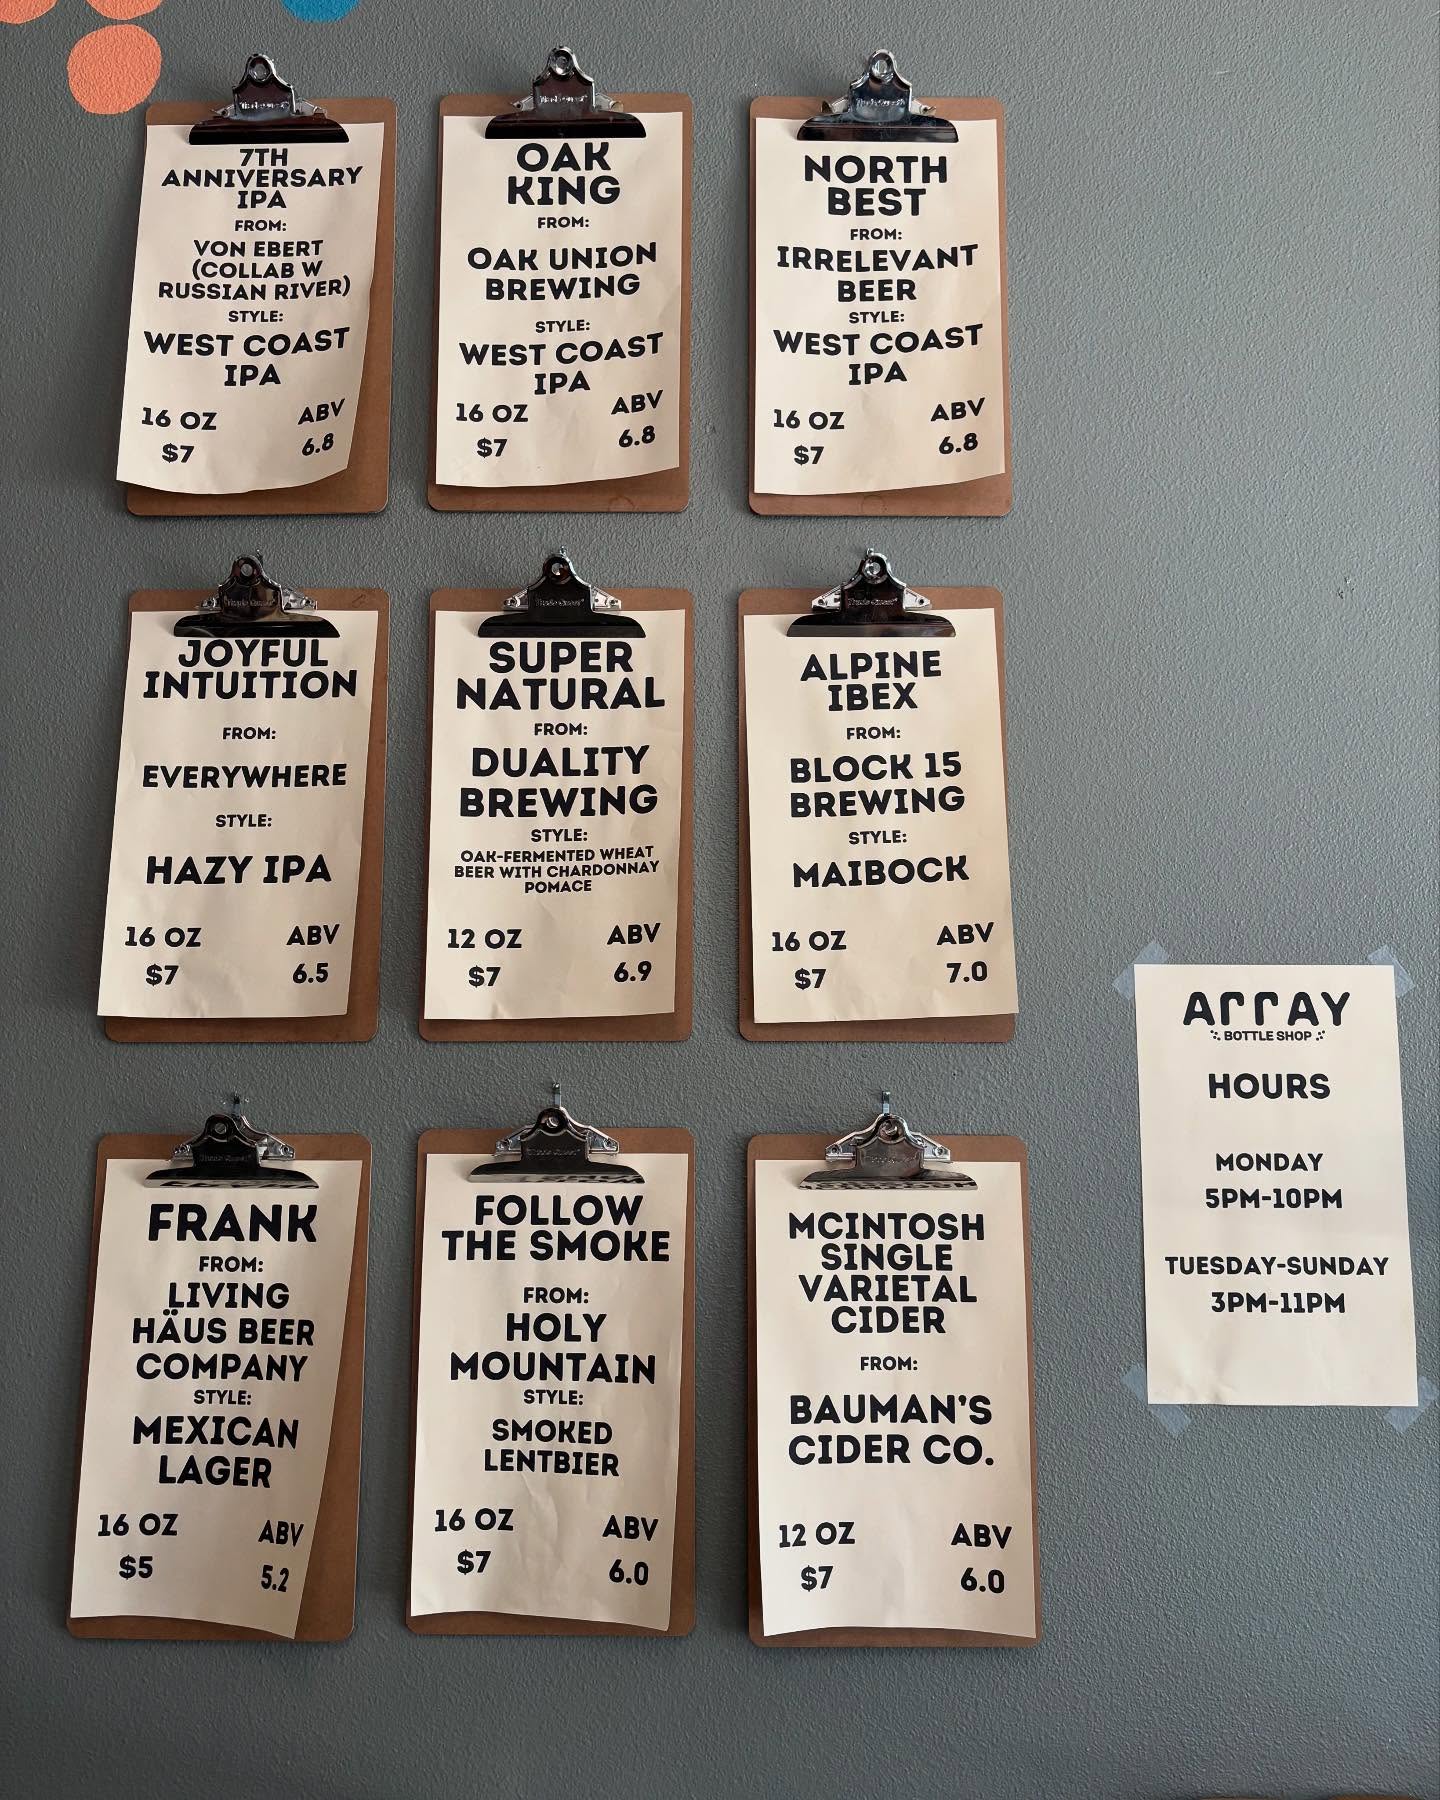 7TH
ANNIVERSARY
IPA
FROM:
VON EBERT
(COLLAB W
RUSSIAN RIVER)
STYLE:
WEST COAST
IPA
16 OZ ABV
$7 6.8
OAK
KING
FROM:
OAK UNION
BREWING
STYLE:
WEST COAST
IPA
16 OZ ABV
$7 6.8
NORTH
BEST
FROM:
IRRELEVANT
BEER
STYLE:
WEST COAST
IPA
16 OZ ABV
$7 6.8
JOYFUL
INTUITION
FROM:
EVERYWHERE
STYLE:
HAZY IPA
16 OZ ABV
$7 6.5
SUPER
NATURAL
FROM:
DUALITY
BREWING
STYLE:
OAK-FERMENTED WHEAT
BEER WITH CHARDONNAY
POMACE
12 OZ ABV
$7 6.9
ALPINE
IBEX
FROM:
BLOCK 15
BREWING
STYLE:
MAIBOCK
16 OZ ABV
$7 7.0
FRANK
FROM:
LIVING
HÄUS BEER
COMPANY
STYLE:
MEXICAN
LAGER
16 OZ ABV
$5 5.2
FOLLOW
THE SMOKE
FROM:
HOLY
MOUNTAIN
STYLE:
SMOKED
LENTBIER
16 OZ ABV
$7 6.0
MCINTOSH
SINGLE
VARIETAL
CIDER
FROM:
BAUMAN'S
CIDER CO.
12 OZ ABV
$7 6.0
ARRAY
BOTTLE SHOP
HOURS
MONDAY
5PM-10PM
TUESDAY-SUNDAY
3PM-11PM